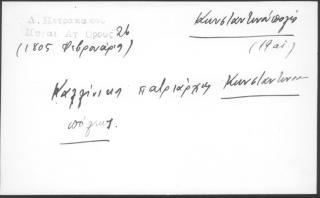 Δ. Πετρακάκου
Μοναχ. Αγ. Όρους 26
(1805 Φεβρουάριος)
Κωνσταντινούπολις
(19 αι)
Καλλίνικος πατριάρχης Κωνσταντινου
πόλεως.